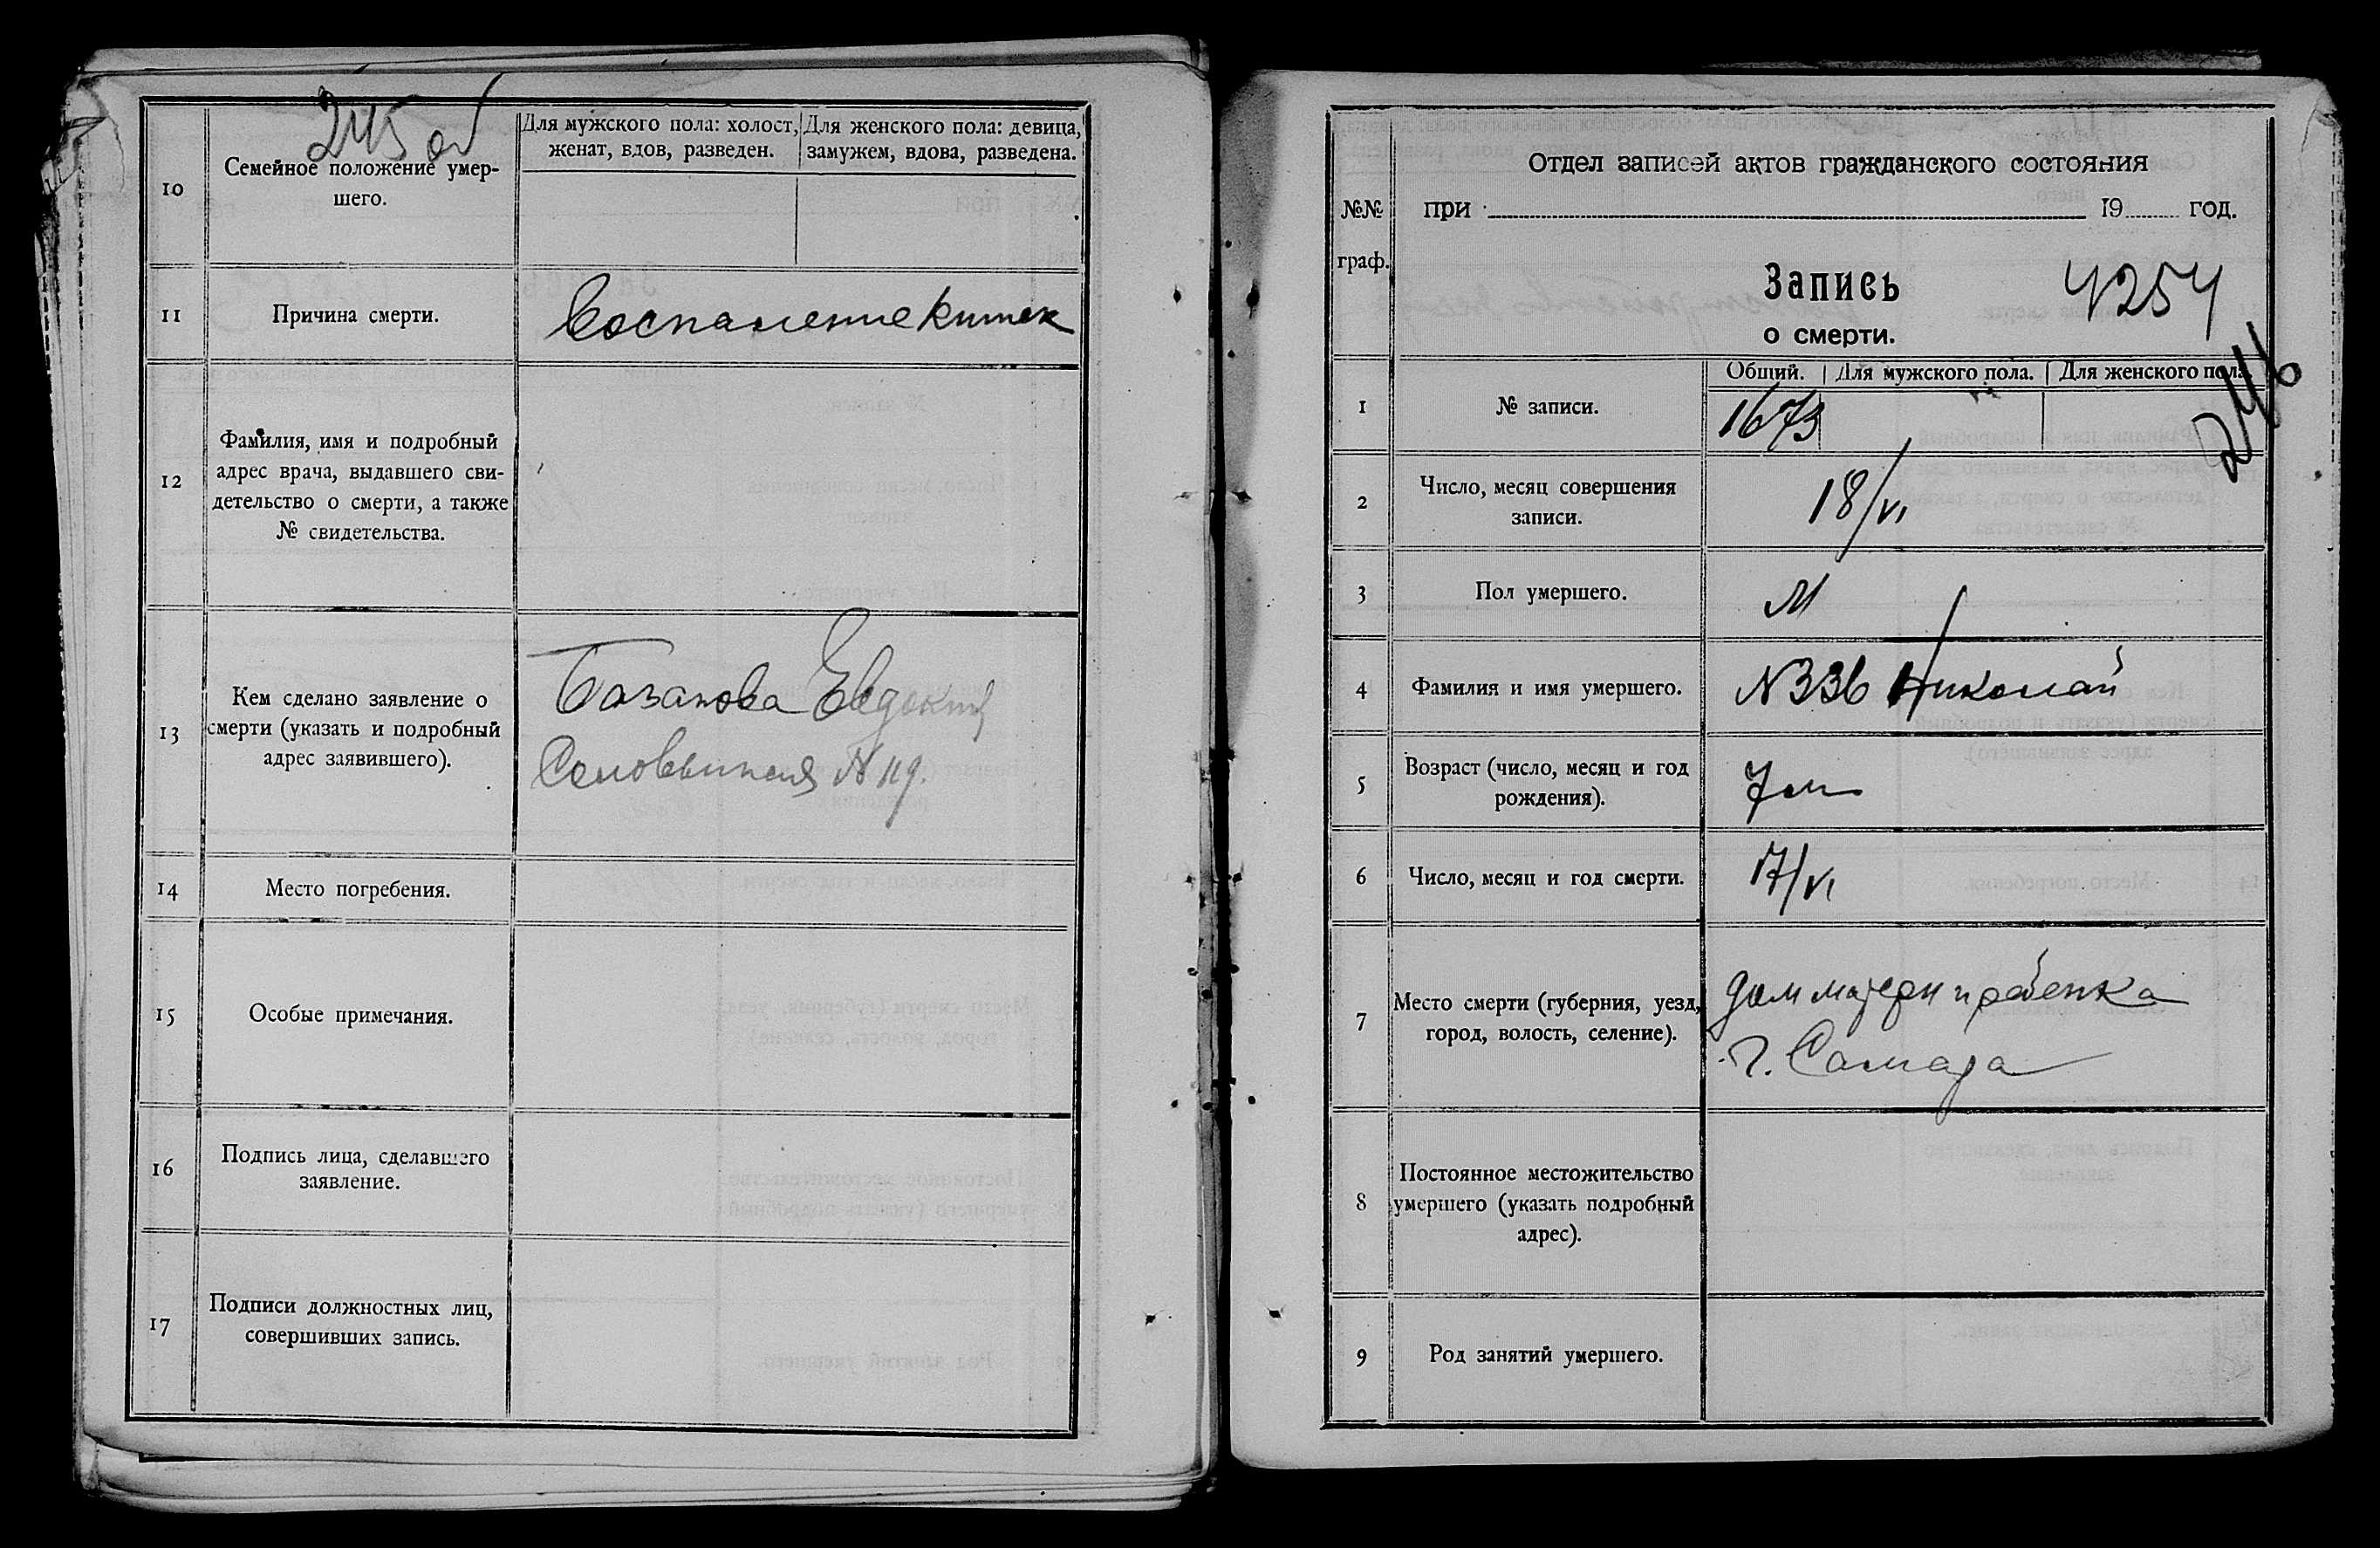 245 об
10
Семейное положение умер-
шего.
Для мужского пола: холост,
женат, вдов, разведен.
Для женского пола: девица,
замужем, вдова, разведена.
11
Причина смерти.
Воспаление кишек
12
Фамилия, имя и подробный
адрес врача, выдавшего сви-
детельство о смерти, а также
№ свидетельства.
13
Кем сделано заявление о
смерти (указать и подробный
адрес заявившего).
Базанова Евдокия
№ 119.
14
Место погребения.
15
Особые примечания.
16
Подпись лица, сделавшего
заявление.
17
Подписи должностных лиц,
совершивших запись.
№№
граф.
Отдел записей актов гражданского состояния
при 19 год.
Запись
о смерти.
4254
246
1
№ записи.
Общий.
Для мужского пола.
Для женского пола.
1673
2
Число, месяц совершения
записи.
18/VI
3
Пол умершего.
М
4
Фамилия и имя умершего.
N 336 Николай
5
Возраст (число, месяц и год
рождения).
7 м
6
Число, месяц и год смерти.
17/VI
7
Место смерти (губерния, уезд,
город, волость, селение).
дом матери и ребенка
г. Самара
8
Постоянное местожительство
умершего (указать подробный
адрес).
9
Род занятий умершего.